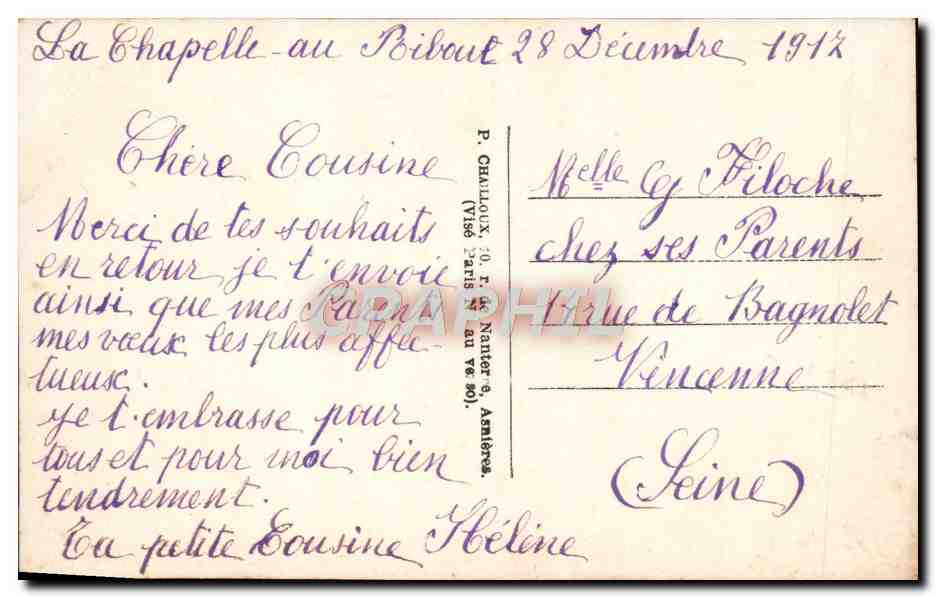 La Chapelle-au Ribout 28 Décembre 1917
Chère Cousine
Merci de tes souhaits
en retour je t'envoie
ainsi que mes Parents
mes vœux les plus affec-
tueux.
Je t'embrasse pour
tous et pour moi bien
tendrement.
Ta petite Cousine Hélène
P. CHAILLOUX, r. de Nanterre, Asnières.
(Visé Paris N au verso).
Melle G Filoche
chez ses Parents
rue de Bagnolet
Vincenne
(Seine)
CRAPHIL